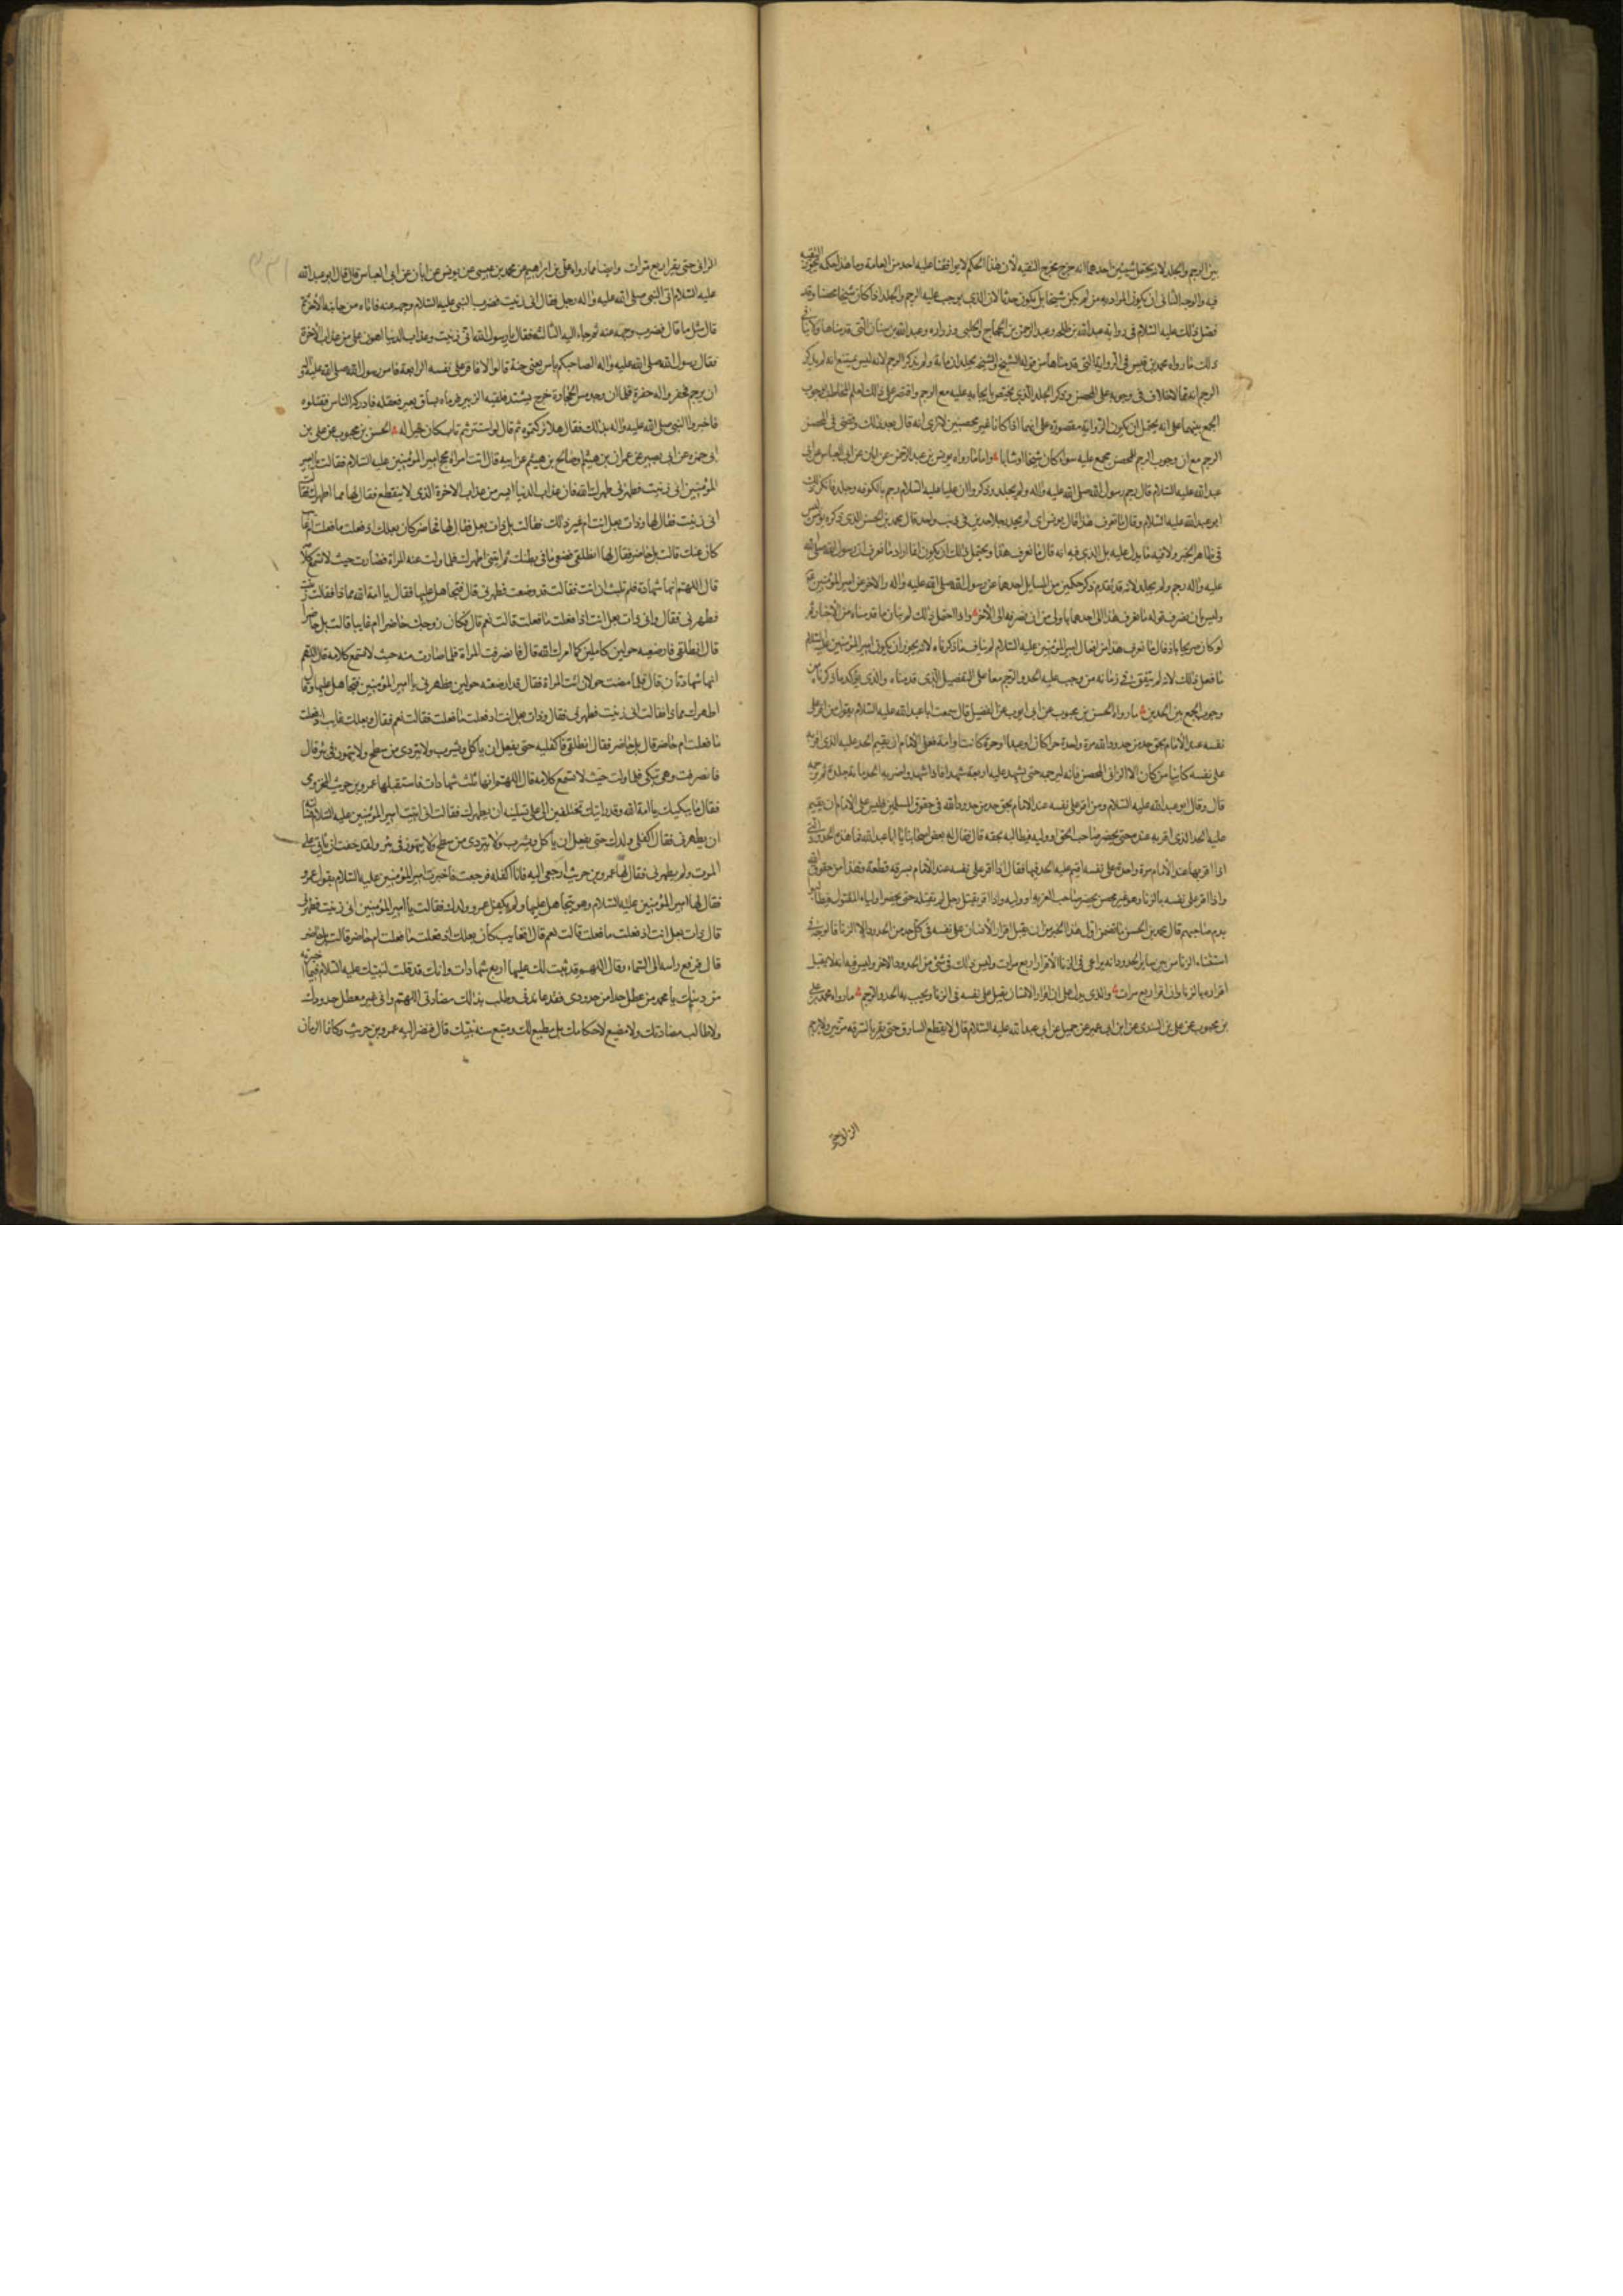 بين الرجم والجلد لانه يحتمل شيئين احدهما انه خرج مخرج التقيه لان هذا الحكم لا يوافقنا عليه احد من العامة وما هذا حكمه يجوز التقيه
فيه والوجه الثانى ان يكون المراد به من لم يكن شيخا بل يكون حدثا لان الذى يوجب عليه الرجم والجلد اذا كان شيخا محصنا وقد
فصل ذلك عليه السلام فى رواية عبدالله بن طلحه وعبد الرحمن بن الحجاج والحلبى وزراره وعبدالله بن سنان التى قدمناها
ذلك ما رواه محمد بن قيس فى الرواية التى قدمناها من قوله الشيخ والشيخه يجلدان مائة ولم يذكر الرجم لانه ليس يمتنع انه لم يذكر
الرجم انه مما لا خلاف فى وجوبه على المحصن وذكر الجلد الذى يختص بايجابه عليه مع الرجم واقتصر على ذلك لعلم المخاطب بوجوب
الجمع بينهما على انه يحتمل ان يكون الرواية مقصورة على انهما اذا كانا غير محصنين لا ترى انه قال بعد ذلك وقضى فى المحصن
الرجم مع ان وجوب الرجم للمحصن مجمع عليه سواء كان شيخا او شابا واما ما رواه يونس بن عبد الرحمن عن ابان عن ابى العباس عن ابى
عبدالله عليه السلام قال رجم رسول الله صلى الله عليه واله ولم يجلد وذكروا ان عليا عليه السلام رجم بالكوفه وجلد فانكر ذلك
ابو عبدالله عليه السلام وقال ما نعرف هذا قال يونس اى لم يحد رجلا حدين فى ذنب واحد قال محمد بن الحسن الذى ذكره يونس ليس
فى ظاهر الخبر ولا فيه ما يدل عليه بل الذى فيه انه قال ما نعرف هذا ويحتمل ذلك ان يكون انما اراد ما نعرف ان رسول الله صلى الله
عليه واله رجم ولم يجلد لانه قد تقدم ذكر حكمين من السايل احدهما عن رسول الله صلى الله عليه واله والاخر عن امير المؤمنين
وليس بان نصرف قوله ما نعرف هذا الى احدهما باولى من ان نصرفه الى الاخر واذا احتمل ذلك لم يناف ما قدمناه من الاخبار ثم
لو كان صريحا بانه قال ما نعرف هذا من افعال امير المؤمنين عليه السلام لم يناف ما ذكرناه لانه يجوز ان يكون امير المؤمنين عليه السلام
ما فعل ذلك لانه لم يتفق فى زمانه من وجب عليه الحد والرجم معا على التفصيل الذى قدمناه والذى يؤكد ما ذكرناه من
وجوب الجمع بين الحدين ما رواه الحسن بن محبوب عن ابى ايوب عن الفضيل قال سمعت ابا عبدالله عليه السلام يقول من اقر على
نفسه عند الامام بحق حد من حدود الله مرة واحدة حرا كان او عبدا او حرة كانت او امة فعلى الامام ان يقيم الحد عليه الذى اقر به
على نفسه كاينا من كان الا الزانى المحصن فانه لا يرجمه حتى يشهد عليه اربعة شهداء فاذا شهدوا ضربه الحد مائة جلدة ثم يرجمه
قال وقال ابو عبدالله عليه السلام ومن اقر على نفسه عند الامام بحق حد من حدود الله فى حقوق المسلمين فليس على الامام ان يقيم
عليه الحد الذى اقر به عنده حتى يحضر صاحب الحق او وليه فيطالبه بحقه قال فقال له بعض اصحابنا يا ابا عبدالله فما هذه الحدود التى
اذا اقر بها عند الامام مرة واحدة على نفسه اقيم عليه الحد فيها فقال اذا اقر على نفسه عند الامام بسرقة قطعه فهذا من حقوق الله
واذا اقر على نفسه بالزنا وهو غير محصن يحضر صاحب الفرية او وليه واذا اقر بقتل رجل لم يقتله حتى يحضر اولياء المقتول فيطالبوا
بدم صاحبهم قال محمد بن الحسن ما تضمن اول هذا الخبر من ان يقبل اقرار الانسان على نفسه فى كل حد من الحدود الا الزنا فالوجه فى
استثناء الزنا من بين ساير الحدود انه يراعى فى الزنا الاقرار اربع مرات وليس ذلك فى شئ من الحدود الاخر وليس فيه انه لا يقبل
اقراره بالزنا وان اقر اربع مرات والذى يدل على ان اقرار الانسان يقبل على نفسه فى الزنا ويجب به الحد والرجم ما رواه محمد بن على
بن محبوب عن على بن السندى عن ابن ابى عمير عن جميل عن ابى عبدالله عليه السلام قال لا يقطع السارق حتى يقر بالسرقه مرتين ولا يرجم
الزانى حتى
الزانى حتى يقر اربع مرات وايضا ما رواه على بن ابراهيم عن محمد بن عيسى عن يونس عن ابان عن ابى العباس قال قال ابو عبدالله
عليه السلام اتى النبى صلى الله عليه واله رجل فقال انى زنيت فصرف النبى عليه السلام وجهه عنه فاتاه من جانبه الاخر ثم
قال مثل ما قال فصرف وجهه عنه ثم جاء اليه الثالثه فقال يا رسول الله انى زنيت وعذاب الدنيا اهون على من عذاب الاخرة
فقال رسول الله صلى الله عليه واله ابصاحبكم باس يعنى جنة قالوا لا فاقر على نفسه الرابعة فامر رسول الله صلى الله عليه واله
ان يرجم فحفر واله حفرة فلما ان وجد مس الحجارة خرج يشتد فلقيه الزبير فرماه بساق بعير فعقله فادركه الناس فقتلوه
فاخبروا النبى صلى الله عليه واله بذلك فقال هلا تركتموه ثم قال لو استتر ثم تاب كان خيرا له الحسن بن محبوب عن على بن
ابى حمزه عن ابى بصير عن عمران بن ميثم او صالح بن ميثم عن ابيه قال اتت امراة مجح امير المؤمنين عليه السلام فقالت يا امير
المؤمنين انى زنيت فطهرنى طهرك الله فان عذاب الدنيا ايسر من عذاب الاخرة الذى لا ينقطع فقال لها مما اطهرك فقالت
انى زنيت فقال لها وذات بعل انت ام غير ذلك فقالت بل ذات بعل فقال لها فحاضر كان بعلك اذ فعلت ما فعلت ام غايبا
كان عنك قالت بل حاضر فقال لها انطلقى فضعى ما فى بطنك ثم ايتنى اطهرك فلما ولت عنه المراة فصارت حيث لا تسمع كلامه
قال اللهم انها شهادة فلم تلبث ان اتت فقالت قد وضعت فطهرنى قال فتجاهل عليها فقال يا امة الله مماذا فقالت زنيت
فطهرنى فقال وانى وذات بعل انت اذ فعلت ما فعلت قالت نعم قال فكان زوجك حاضرا ام غايبا قالت بل حاضرا
قال انطلقى فارضعيه حولين كاملين كما امرك الله قال فانصرفت المراة فلما صارت منه حيث لا تسمع كلامه قال اللهم
انها شهادتان قال فلما مضت حولان اتت المراة فقال قد ارضعته حولين فطهرنى يا امير المؤمنين فتجاهل عليها وقال
اطهرك مماذا فقالت انى زنيت فطهرنى فقال وذات بعل انت اذ فعلت ما فعلت فقالت نعم فقال وبعلك غايب اذ فعلت
ما فعلت ام حاضر قال بل حاضر فقال انطلقى فاكفليه حتى يعقل ان ياكل ويشرب ولا يتردى من سطح ولا يتهور فى بئر قال
فانصرفت وهى تبكى فلما ولت حيث لا تسمع كلامه قال اللهم انها ثلث شهادات فاستقبلها عمرو بن حريث المخزومى
فقال ما يبكيك يا امة الله وقد رايتك تختلفين الى على تسئلينه ان يطهرك فقالت انى اتيت امير المؤمنين عليه السلام فسألته
ان يطهرنى فقال اكفلى ولدك حتى يعقل ان ياكل ويشرب ولا يتردى من سطح ولا يتهور فى بئر ولقد خفت ان ياتى على
الموت ولم يطهرنى فقال لها عمرو بن حريث ارجعى اليه فانا اكفله فرجعت فاخبرت امير المؤمنين عليه السلام بقول عمرو
فقال لها امير المؤمنين عليه السلام وهو يتجاهل عليها ولم يكفل عمرو ولدك فقالت يا امير المؤمنين انى زنيت فطهرنى
قال وذات بعل انت اذ فعلت ما فعلت قالت نعم قال افغايب كان بعلك اذ فعلت ما فعلت ام حاضر قالت بل حاضر
قال فرفع راسه الى السماء وقال اللهم قد ثبت لك عليها اربع شهادات وانك قد قلت لنبيك عليه السلام فيما اخبرته
من دينك يا محمد من عطل حدا من حدودى فقد عاندنى وطلب بذلك مضادتى اللهم وانى غير معطل حدودك
ولا طالب مضادتك ولا مضيع لاحكامك بل مطيع لك ومتبع سنة نبيك قال فنظر اليه عمرو بن حريث وكانما الرمان